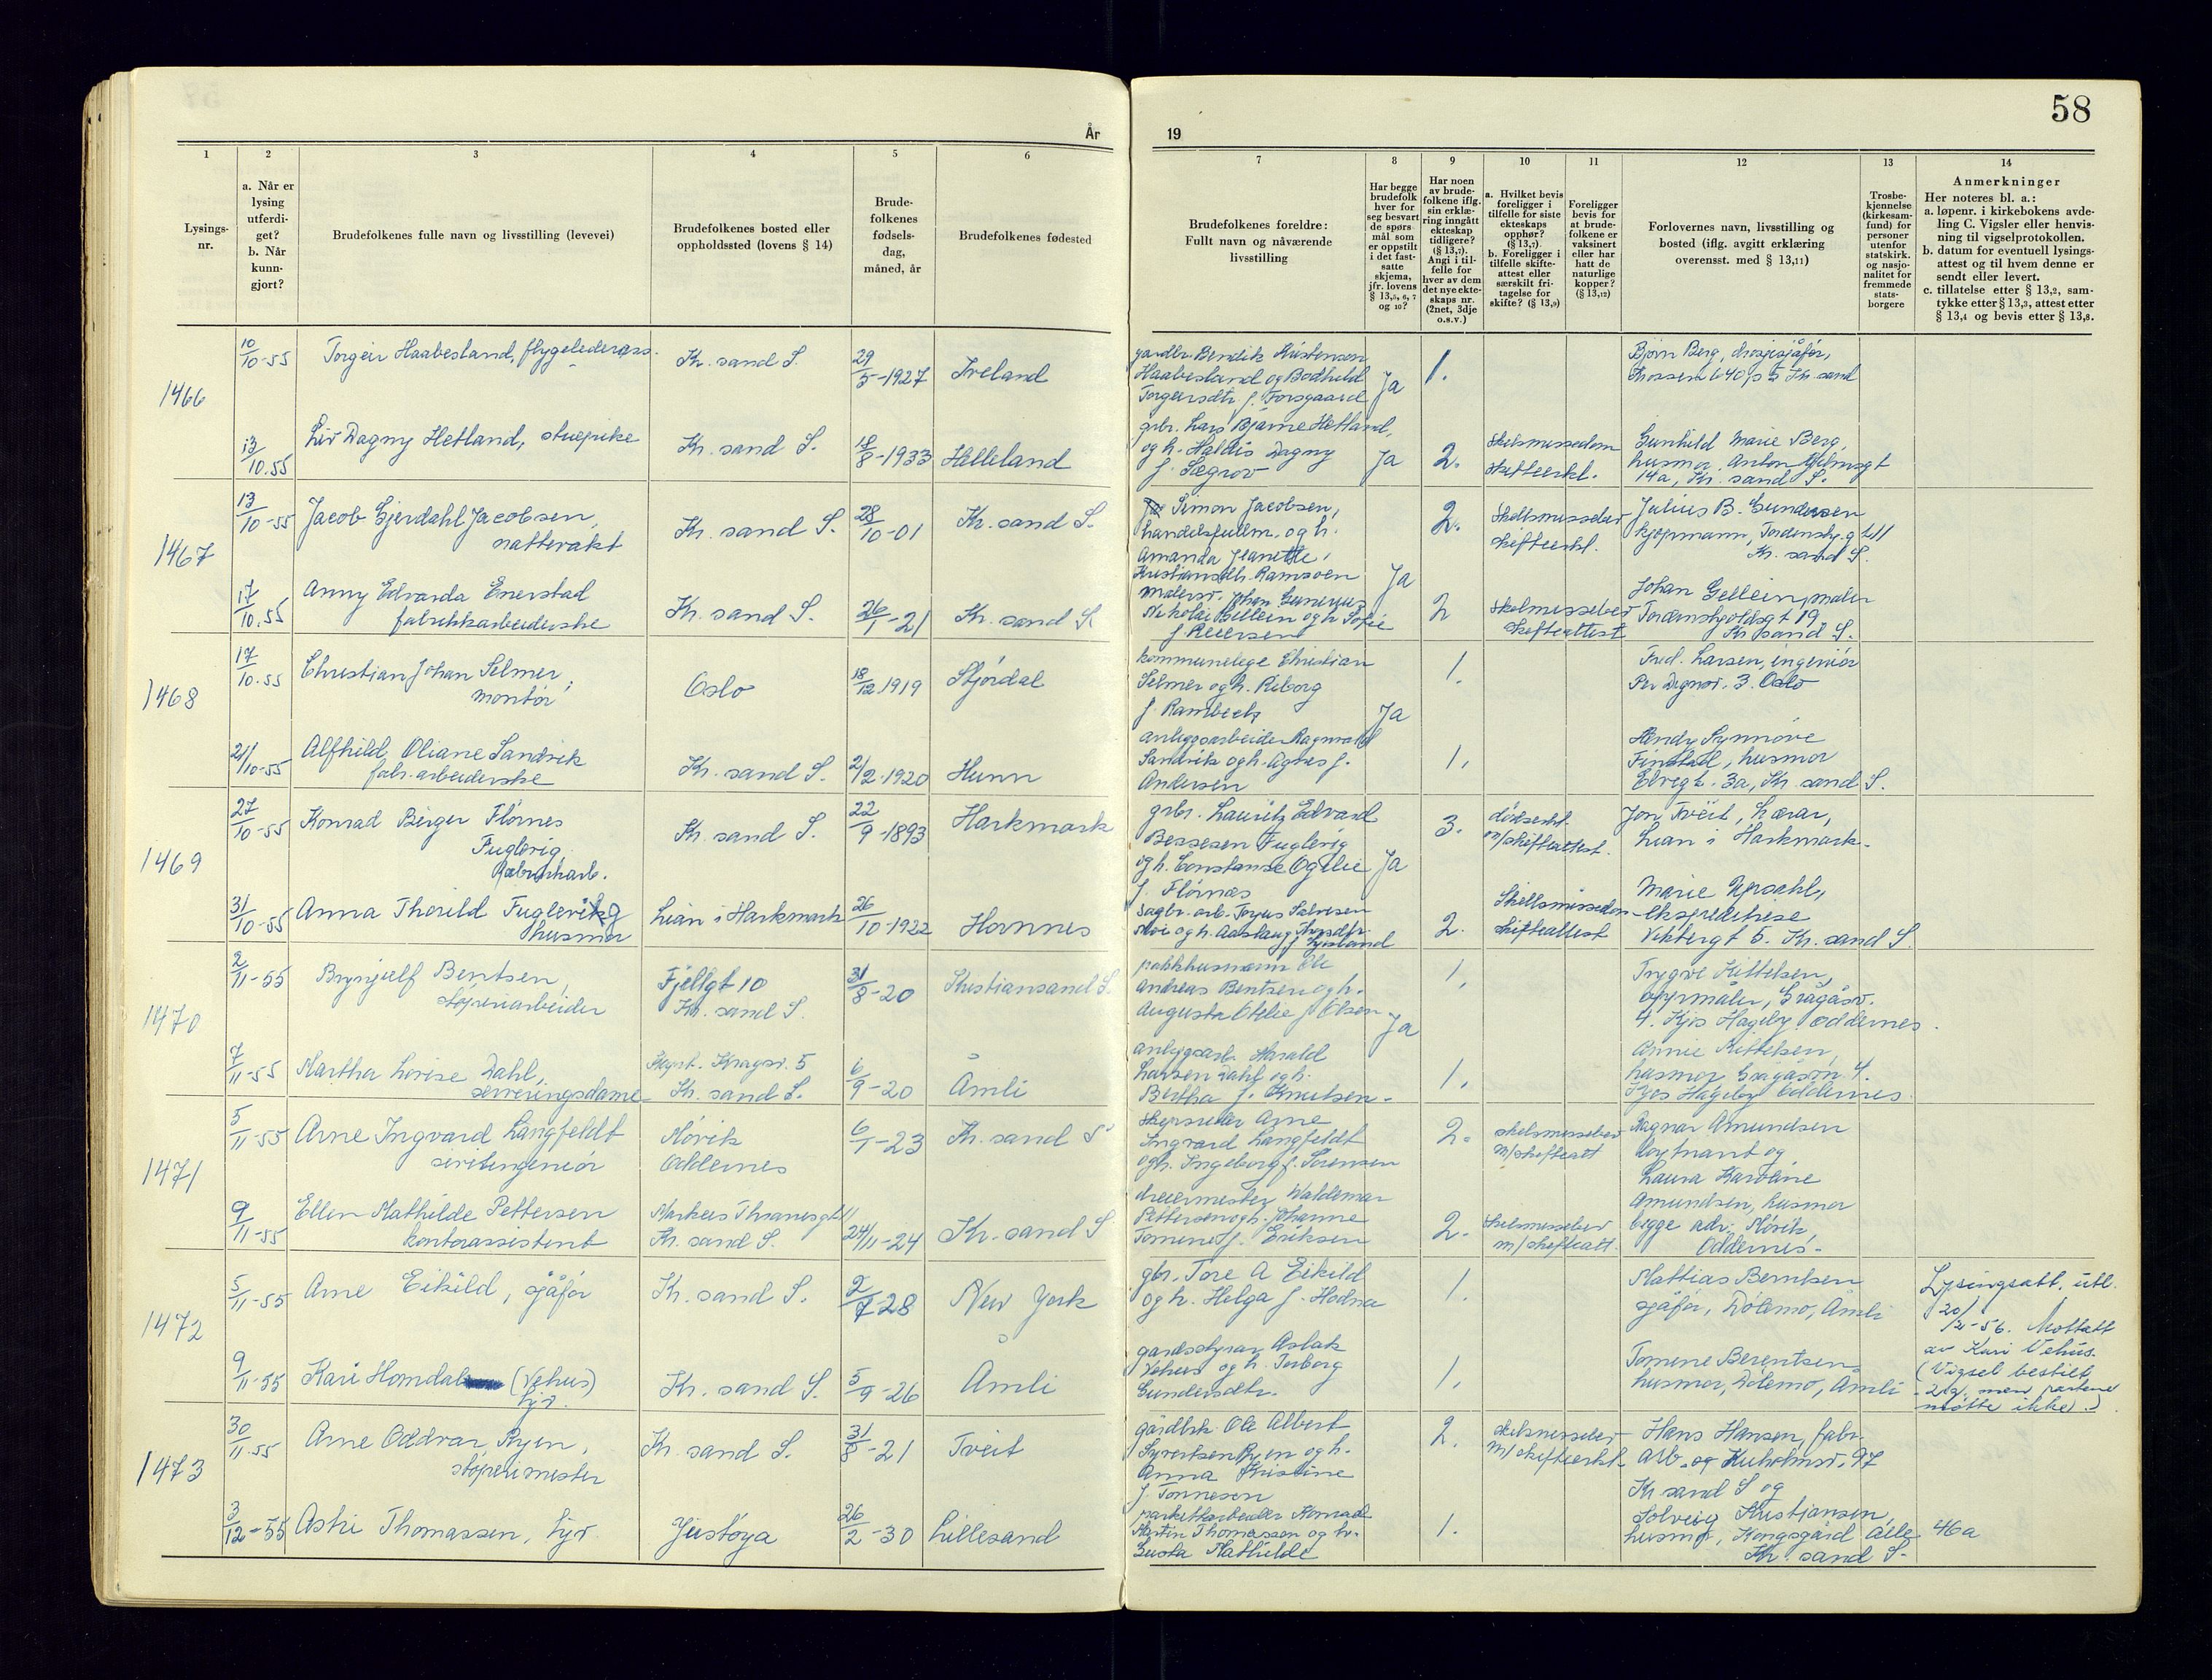 58
År
19
1
2
3
4
5
6
7
8
9
10
11
12
13
14
Lysings-
nr.
a. Når er
lysing
utferdi-
get?
b. Når
kunn-
gjort?
Brudefolkenes fulle navn og livsstilling (levevei)
Brudefolkenes bosted eller
oppholdssted (lovens § 14)
Brude-
folkenes
fødsels-
dag,
måned, år
Brudefolkenes fødested
Brudefolkenes foreldre:
Fullt navn og nåværende
livsstilling
Har begge
brudefolk
hver for
seg besvart
de spørs-
mål som
er oppstilt
i det fast-
satte
skjema,
jfr. lovens
§ 13,5, 6, 7
og 10?
Har noen
av brude-
folkene iflg.
sin erklæ-
ring inngått
ekteskap
tidligere?
(§ 13,7).
Angi i til-
felle for
hver av dem
det nye ekte-
skaps nr.
(2net, 3dje
o.s.v.)
a. Hvilket bevis
foreligger i
tilfelle for siste
ekteskaps
opphør?
(§ 13,7).
b. Foreligger i
tilfelle skifte-
attest eller
særskilt fri-
tagelse for
skifte? (§ 13,9)
Foreligger
bevis for
at brude-
folkene er
vaksinert
eller har
hatt de
naturlige
kopper?
(§ 13,12)
Forlovernes navn, livsstilling og
bosted (iflg. avgitt erklæring
overensst. med § 13,11)
Trosbe-
kjennelse
(kirkesam-
fund) for
personer
utenfor
statskirk.
og nasjo-
nalitet for
fremmede
stats-
borgere
Anmerkninger
Her noteres bl. a.:
a. løpenr. i kirkebokens avde-
ling C. Vigsler eller henvis-
ning til vigselprotokollen.
b. datum for eventuell lysings-
attest og til hvem denne er
sendt eller levert.
c. tillatelse etter § 13,2, sam-
tykke etter § 13,3, attest etter
§ 13,4 og bevis etter § 13,8.
1466
10/10-55
Torgeir Haabesland, flygelederass.
Kr. sand S.
29/5-1927
Iveland
gardbr. Bendik Kristensen
Haabesland og Bodhild
Torgersdtr f. Forsgaard
Ja
1.
Bjørn Berg, drosjesjåfør,
Kr. sand
13/10.55
Liv Dagny Hetland, stuepike
Kr. sand S.
18/8-1933
Helleland
grbr. Lars Bjarne Hetland,
og h. Haldis Dagny
f. Sægrov
Ja
2.
skilsmissedom
skifteerkl.
Gunhild Marie Berg,
husmor, Anton
14a, Kr. sand S.
1467
13/10-55
Jacob Gjerdahl Jacobsen,
nattevakt
Kr. sand S.
28/10-01
Kr. sand S.
Simon Jacobsen,
handelsfullm. og h.
Amanda Jeanette,
Kristiansdtr. Ramsøen
Ja
2.
Skilsmissebev
skifteerkl.
Julius B. Gundersen
kjøpmann, Tordenskj.g
Kr. sand S.
17/10.55
Anny Edvarda Enerstad
fabrikkarbeiderske
Kr. sand S.
26/1-21
Kr. sand S
malersv. Johan Gunerius
Nikolai Gellein og h. Sofie
f. Reiersen
2
skilmissebev
skifteattest
Johan Gellein, maler
Tordenskjoldsgt 19,
Kr. sand S.
1468
17/10.55
Christian Johan Selmer,
montør
Oslo
18/12 1919
Stjørdal
kommunelege Christian
Selmer og h. Riborg
f. Rambech
Ja
1.
Fred. Larsen, ingeniør
Per Degnsv. 3. Oslo
21/10-55
Alfhild Oliane Sandvik
fabr. arbeiderske
Kr. sand S.
2/2-1920
Hunn
anleggsarbeider Ragnvald
Sandvik og h. Agnes f.
Andersen
1.
Synnøve
Finstad, husmor
Elvegt. 3a, Kr. sand S.
1469
27/10-55
Konrad Birger Flørnes
Fuglevig
fabrikkarb.
Kr. sand S.
22/9-1893
Harkmark
grbr. Lauritz Edvard
Bessesen Fuglevig
og h. Constanse Ogelie
f. Flørnæs
Ja
3.
m/skifteattest.
Jon Tveit, lærar,
Lian i Harkmark.
31/10-55
Anna Thorild Fuglevig
husmor
Lian i Harkmark
26/10-1922
Hornnes
Sagbr. arb. Torjus Salvesen
Moi og h. Aaslaug
2.
Skilsmissedom
skifteattest
Marie Uppsahl,
ekspeditrise
Vektergt 5. Kr. sand S.
1470
2/11-55
Brynjulf Bentsen,
støperiarbeider
Fjellgt 10
Kr. sand S.
31/8-20
Kristiansand S.
pakkhusmann Ole
Andreas Bentsen og h.
Augusta Otelie f Olsen
Ja
1.
Trygve Kittelsen,
oppmåler, Grågåsv.
4. Kjos Hageby. Oddernes.
7/11-55
Martha Lovise Dahl,
serveringsdame
Kragsv. 5
Kr. sand S.
6/9-20
Åmli
anleggsarb. Harald
Larsen Dahl og h.
Bertha f. Knutsen.
1.
Annie Kittelsen,
husmor Grågåsvn 4.
Kjos Hageby Oddernes
1471
5/11-55
Arne Ingvard Langfeldt
sivilingeniør
Mørvik
Oddernes
6/1-23
Kr. sand S
skipsreder Arne
Ingvard Langfeldt
og h. Ingeborg f. Sørensen
2.
skilsmissebev
m/skifteatt
Ragnar Amundsen
løytnant og
Laura Karoline
Amundsen, husmor
begge adr. Mørvik,
Oddernes.
9/11-55
Ellen Mathilde Pettersen
kontorassistent
Markus Thranesgt 11
Kr. sand S.
24/11-24
Kr. sand S
dreiermester Waldemar
Pettersen og h. Johanne
Tomine f. Eriksen
2.
skilsmissebev
m/skifteatt.
1472
5/11-55
Arne Eikild, sjåfør
Kr. sand S.
2/7-28
New York
gbr. Tore A Eikild
og h. Helga f. Hodna
1.
Mattias Berntsen
sjåfør, Dølemo, Åmli
Lysingsatt. utl.
20/2-56. Mottatt
av Kari Vehus.
(Vigsel bestilt
men partene
møtte ikke).
9/11-55
Kari Homdal (Vehus)
hjv.
Kr. sand S.
5/9-26
Åmli
gardsstyrar Aslak
Vehus og h. Torborg
Gundersdtr.
1.
Tomine Berentsen
husmor, Dølemo, Åmli
1473
30/11.55
Arne Oddvar Ryen,
støperimester
Kr. sand S.
31/8-21
Tveit
gårdbrk Ole Albert
Syvertsen Ryen og h.
Anna Kristine
f. Tønnesen
2.
skilsmissebev
m/skifteerkl.
Hans Hansen, fabr.
arb. og Kuholmsv. 97
Kr. sand S og
3/12-55
Astri Thomassen, hjv.
Justøya
26/2-30
Lillesand
parkettarbeider Konrad
Martin Thomassen og h.
Gusta Mathilde
1.
Solveig Kristiansen,
husmor, Kongsgård Alle 46a
Kr. sand S.